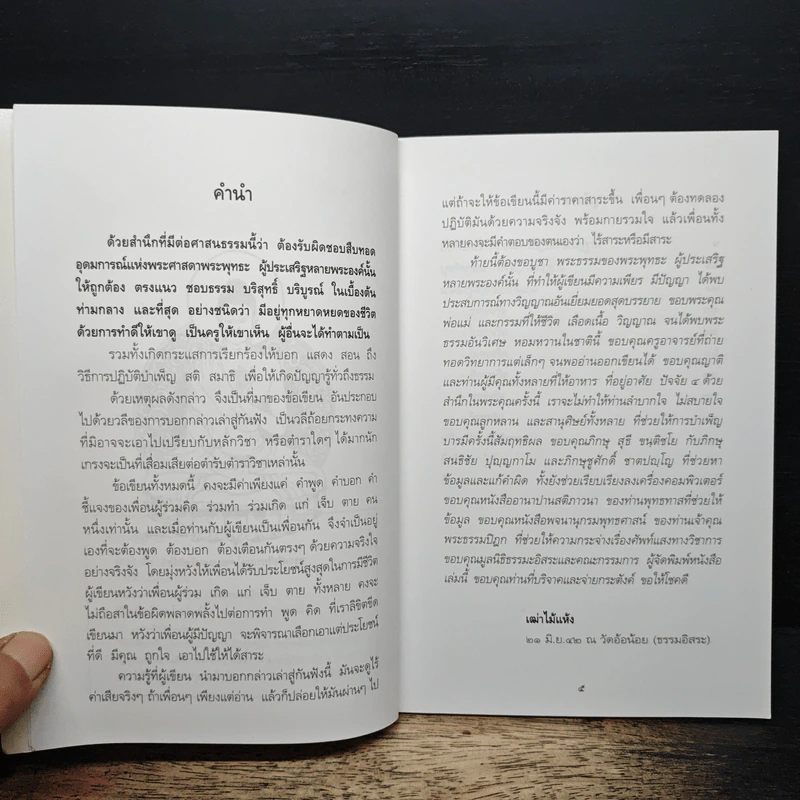 คำนำ
ด้วยสำนึกที่มีต่อศาสนธรรมนี้ว่า ต้องรับผิดชอบสืบทอด
อุดมการณ์แห่งพระศาสดาพระพุทธะ ผู้ประเสริฐหลายพระองค์นั้น
ให้ถูกต้อง ตรงแนว ชอบธรรม บริสุทธิ์ บริบูรณ์ ในเบื้องต้น
ท่ามกลาง และที่สุด อย่างชนิดว่า มีอยู่ทุกหยาดหยดของชีวิต
ด้วยการทำดีให้เขาดู เป็นครูให้เขาเห็น ผู้อื่นจะได้ทำตามเป็น
รวมทั้งเกิดกระแสการเรียกร้องให้บอก แสดง สอน ถึง
วิธีการปฏิบัติบำเพ็ญ สติ สมาธิ เพื่อให้เกิดปัญญารู้ทั่วถึงธรรม
ด้วยเหตุผลดังกล่าว จึงเป็นที่มาของข้อเขียน อันประกอบ
ไปด้วยวลีของการบอกกล่าวเล่าสู่กันฟัง เป็นวลีถ้อยกระทงความ
ที่มิอาจจะเอาไปเปรียบกับหลักวิชา หรือตำราใดๆ ได้มากนัก
เกรงจะเป็นที่เสื่อมเสียต่อตำรับตำราวิชาเหล่านั้น
ข้อเขียนทั้งหมดนี้ คงจะมีค่าเพียงแค่ คำพูด คำบอก คำ
ชี้แจงของเพื่อนผู้ร่วมคิด ร่วมทำ ร่วมเกิด แก่ เจ็บ ตาย คน
หนึ่งเท่านั้น และเมื่อท่านกับผู้เขียนเป็นเพื่อนกัน จึงจำเป็นอยู่
เองที่จะต้องพูด ต้องบอก ต้องเตือนกันตรงๆ ด้วยความจริงใจ
อย่างจริงจัง โดยมุ่งหวังให้เพื่อนได้รับประโยชน์สูงสุดในการมีชีวิต
ผู้เขียนหวังว่าเพื่อนผู้ร่วม เกิด แก่ เจ็บ ตาย ทั้งหลาย คงจะ
ไม่ถือสาในข้อผิดพลาดพลั้งไปต่อการทำ พูด คิด ที่เราลิขิตขีด
เขียนมา หวังว่าเพื่อนผู้มีปัญญา จะพิจารณาเลือกเอาแต่ประโยชน์
ที่ดี มีคุณ ถูกใจ เอาไปใช้ให้ได้สาระ
ความรู้ที่ผู้เขียน นำมาบอกกล่าวเล่าสู่กันฟังนี้ มันจะดูไร้
ค่าเสียจริงๆ ถ้าเพื่อนๆ เพียงแต่อ่าน แล้วก็ปล่อยให้มันผ่านๆ ไป
แต่ถ้าจะให้ข้อเขียนนี้มีค่าราคาสาระขึ้น เพื่อนๆ ต้องทดลอง
ปฏิบัติมันด้วยความจริงจัง พร้อมกายรวมใจ แล้วเพื่อนทั้ง
หลายคงจะมีคำตอบของตนเองว่า ไร้สาระหรือมีสาระ
ท้ายนี้ต้องขอบูชา พระธรรมของพระพุทธะ ผู้ประเสริฐ
หลายพระองค์นั้น ที่ทำให้ผู้เขียนมีความเพียร มีปัญญา ได้พบ
ประสบการณ์ทางวิญญาณอันเยี่ยมยอดสุดบรรยาย ขอบพระคุณ
พ่อแม่ และกรรมที่ให้ชีวิต เลือดเนื้อ วิญญาณ จนได้พบพระ
ธรรมอันวิเศษ หอมหวานในชาตินี้ ขอบคุณครูอาจารย์ที่ถ่าย
ทอดวิทยาการแต่เล็กๆ จนพออ่านออกเขียนได้ ขอบคุณญาติ
และท่านผู้มีคุณทั้งหลายที่ให้อาหาร ที่อยู่อาศัย ปัจจัย ๔ ด้วย
สำนึกในพระคุณครั้งนี้ เราจะไม่ทำให้ท่านลำบากใจ ไม่สบายใจ
ขอบคุณลูกหลาน และสานุศิษย์ทั้งหลาย ที่ช่วยให้การบำเพ็ญ
บารมีครั้งนี้สัมฤทธิผล ขอบคุณภิกษุ สุธี ขนฺติชโย กับภิกษุ
สนธิชัย ปุญฺญกาโม และภิกษุชูศักดิ์ ชาตปญฺโญ ที่ช่วยหา
ข้อมูลและแก้คำผิด ทั้งยังช่วยเรียบเรียงลงเครื่องคอมพิวเตอร์
ขอบคุณหนังสืออานาปานสติภาวนา ของท่านพุทธทาสที่ช่วยให้
ข้อมูล ขอบคุณหนังสือพจนานุกรมพุทธศาสน์ ของท่านเจ้าคุณ
พระธรรมปิฎก ที่ช่วยให้ความกระจ่างเรื่องศัพท์แสงทางวิชาการ
ขอบคุณมูลนิธิธรรมะอิสระและคณะกรรมการ ผู้จัดพิมพ์หนังสือ
เล่มนี้ ขอบคุณท่านที่บริจาคและจ่ายกระตังค์ ขอให้โชคดี
เฒ่าไม้แห้ง
๒๑ มิ.ย.๔๒ ณ วัดอ้อน้อย (ธรรมอิสระ)
๕